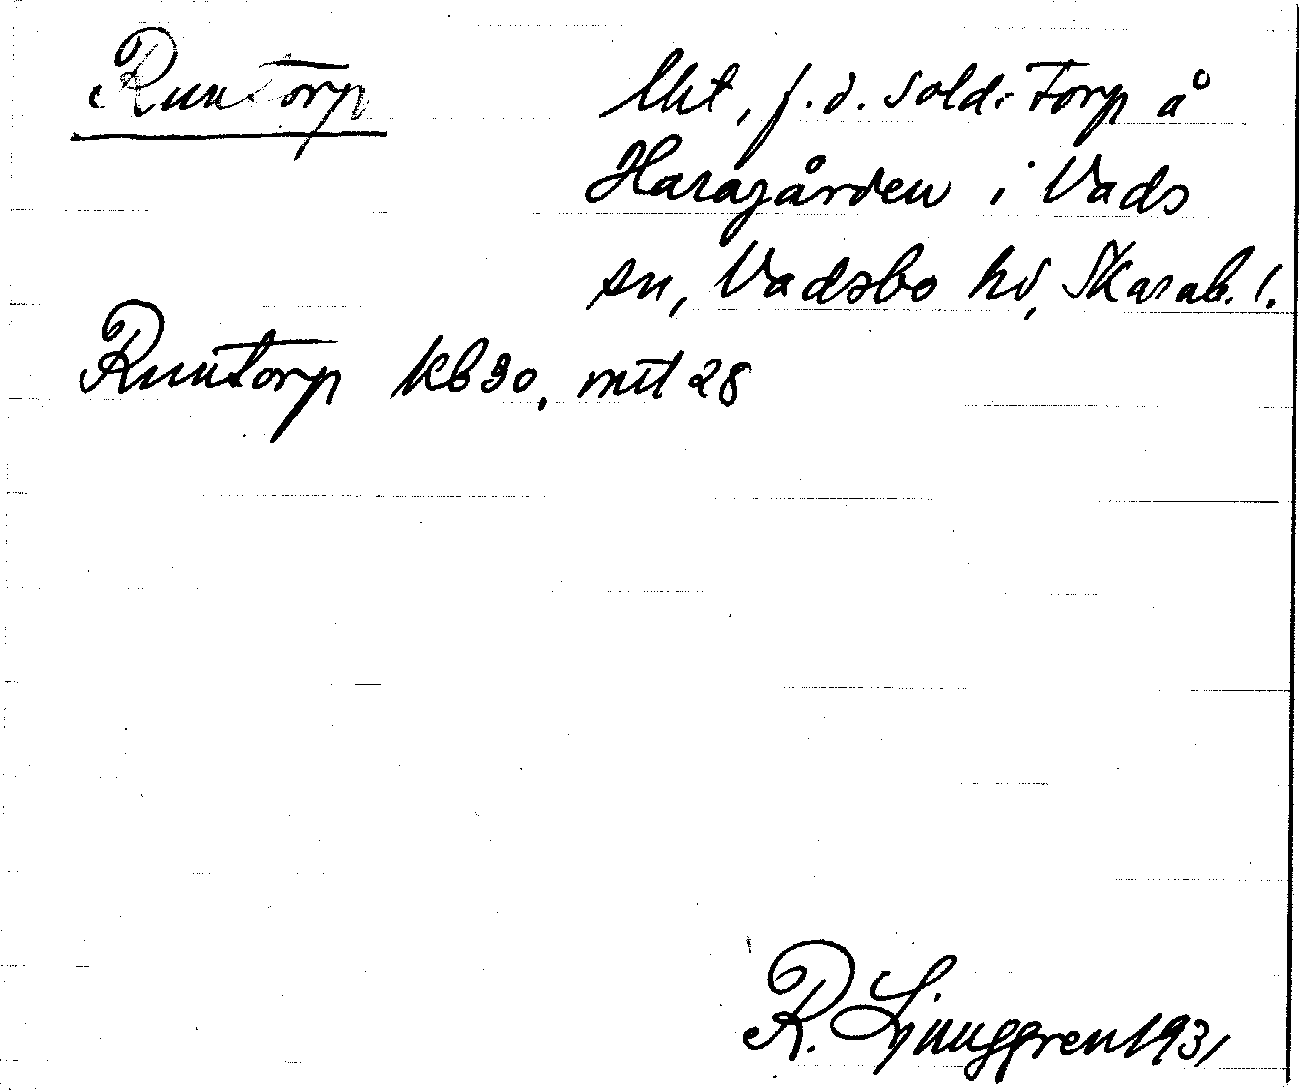 Runtorp
lht, f. d. sold. torp å
Haragården i Vads
sn, Vadsbo hd, Skarab. l.
Runtorp kb 30, mtl 28
R. Ljunggren 1931